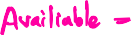 Availiable -